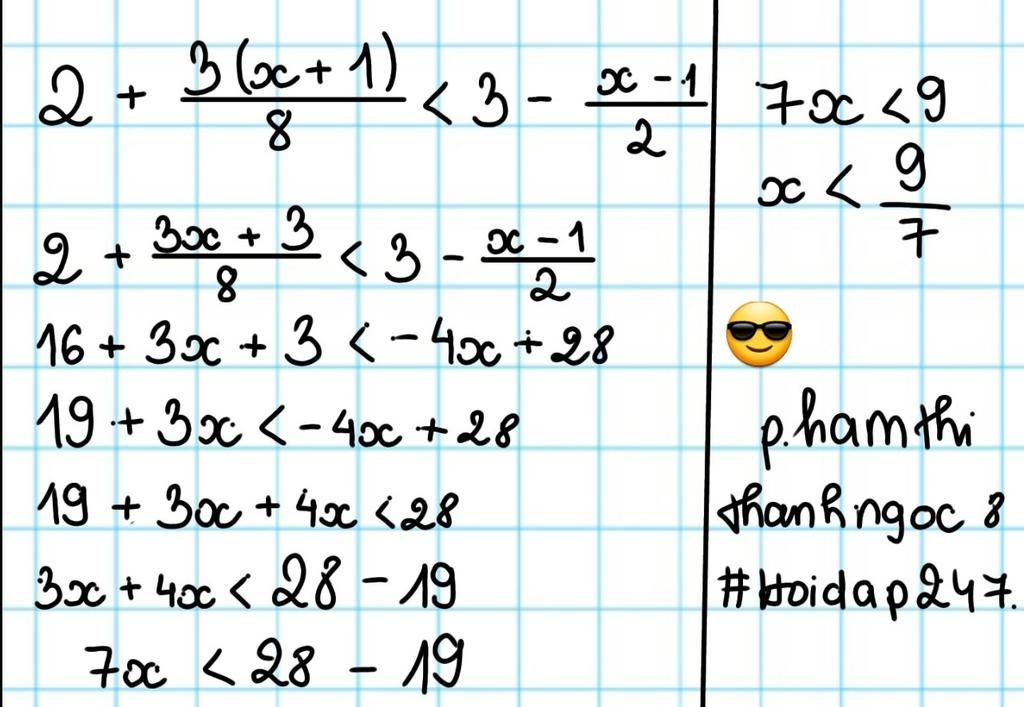 2 + 3(x+1)/8 < 3 - x-1/2
2 + 3x + 3/8 < 3 - x-1/2
16 + 3x + 3 < -4x + 28
19 + 3x < -4x + 28
19 + 3x + 4x < 28
3x + 4x < 28 - 19
7x < 28 - 19
7x < 9
x < 9/7
p.hamthi
thanhngoc 8
#hoidap247.